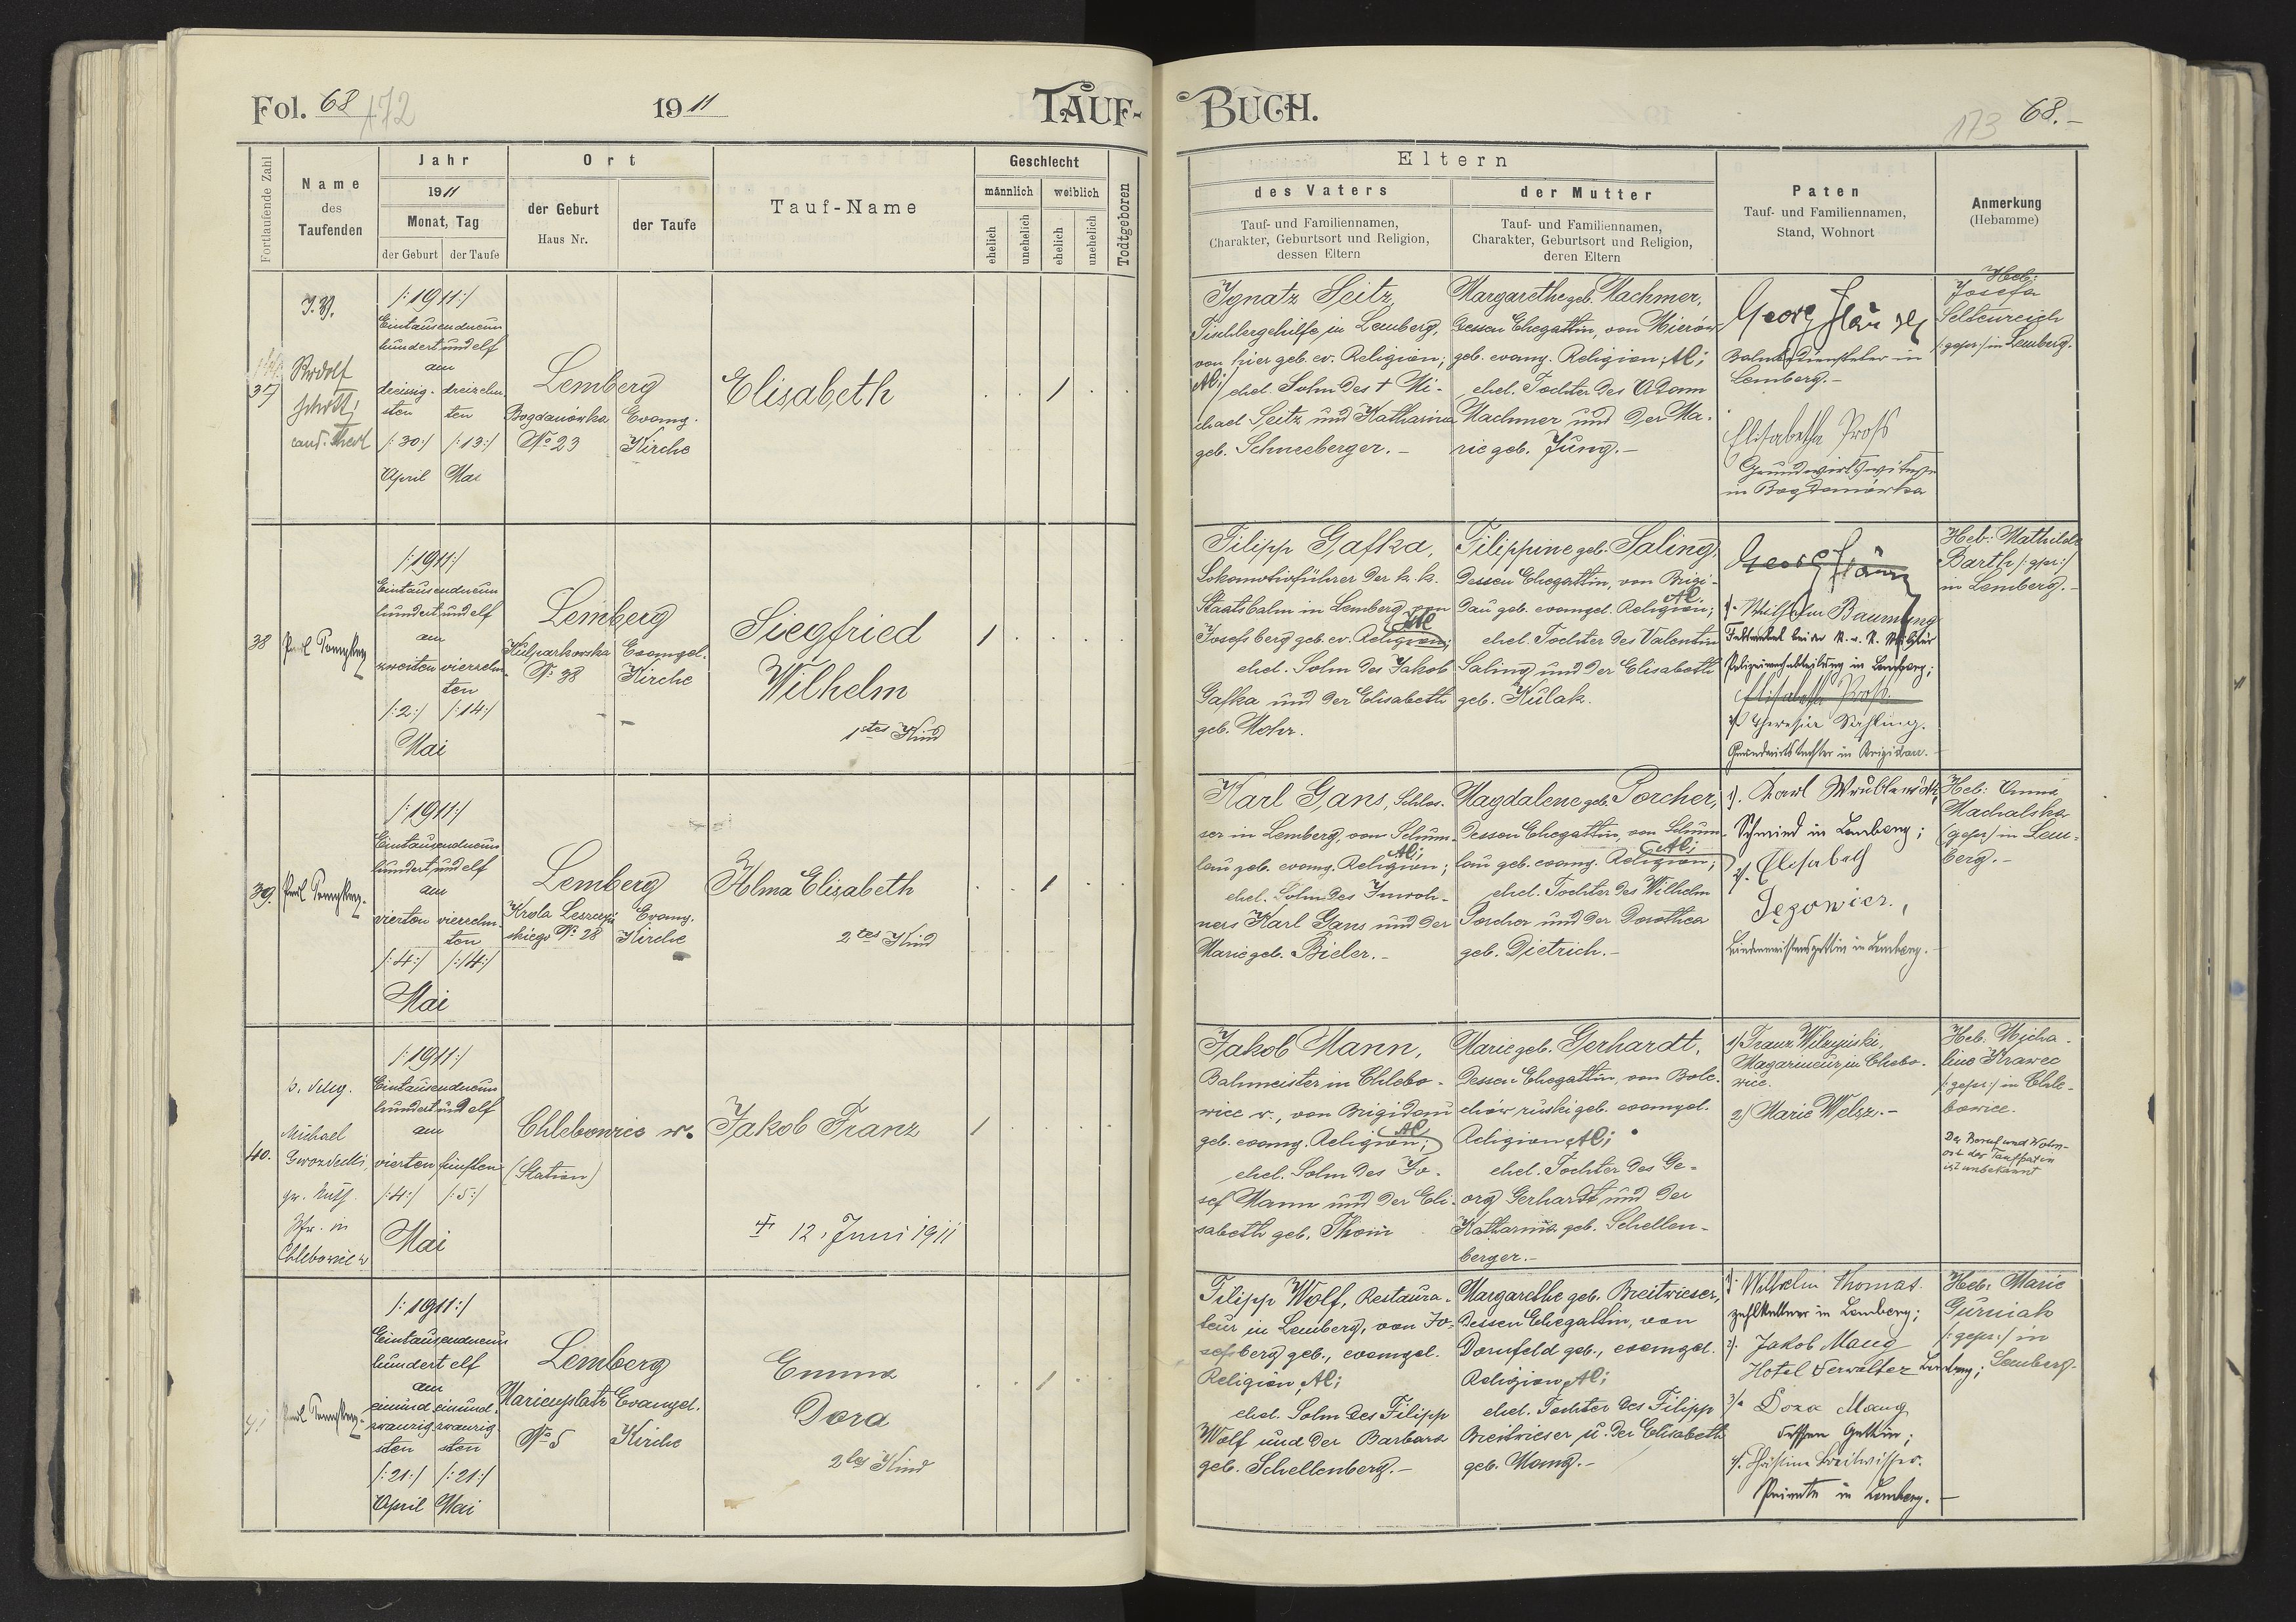 Fol. 68 172
1911
TAUF-
Fortlaufende Zahl
Name
des
Taufenden
Jahr
1911
Monat, Tag
der Geburt
der Taufe
Ort
der Geburt
Haus Nr.
der Taufe
Tauf-Name
Geschlecht
männlich
weiblich
ehelich
unehelich
ehelich
unehelich
Todtgeboren
37
I. V.
Rudolf
cand. theol
/:1911:/
Eintausendneun
hundert und elf
am
dreissig-
sten
/:30:/
April
dreizehn
ten
/:13:/
Mai
Lemberg
Bogdanówka
No 23
Evang.
Kirche
Elisabeth
1
38
/:1911:/
Eintausendneun
hundert und elf
am
zweiten
/:2:/
vierzehn
ten
/:14:/
Mai
Lemberg
Kulparkowska
No 38
Evangel.
Kirche
Siegfried
Wilhelm
1tes Kind
1
39.
/:1911:/
Eintausendneun
hundert und elf
am
vierten
/:4:/
vierzehn
ten
/:14:/
Mai
Lemberg
Krola Leszczyń
skiego No 28
Evang.
Kirche
Alma Elisabeth
2tes Kind
1
40.
Michael
gr. kath.
Pfr. in
Chlebowice w
/:1911:/
Eintausendneun
hundert und elf
am
vierten
/:4:/
fünften
/:5:/
Mai
Chlebowice w.
(Station)
Jakob Franz
12. Juni 1911
1
41
/:1911:/
Eintausendneun
hundert elf
am
einund
zwanzig
sten
/:21:/
April
einund-
zwanzig
sten
/:21:/
Mai
Lemberg
Marienplatz
No 5
Evangel.
Kirche
Emma
Dora
2tes Kind
1
BUCH.
173
68.-
Eltern
des Vaters
Tauf- und Familiennamen,
Charakter, Geburtsort und Religion,
dessen Eltern
der Mutter
Tauf- und Familiennamen,
Charakter, Geburtsort und Religion,
deren Eltern
Paten
Tauf- und Familiennamen,
Stand, Wohnort
Anmerkung
(Hebamme)
Ignatz Seitz,
Tischlergehilfe in Lemberg,
von hier geb. ev. Religion;
AC; ehel. Sohn des † Mi-
chael Seitz und Katharina
geb. Schneeberger.-
Margarethe geb. Machmer,
dessen Ehegattin, von Mierów
geb. evang. Religion; AC;
ehel. Tochter des Adam
Machmer und der Ma-
rie geb. Jung.-
Georg
Bahnbediensteter in
Lemberg.-
Elisabetha Pross
Grundwirtswitwe
in Bogdanówka
Heb:
Josefa
Seltenreich
/:gepr:/ in Lemberg.
Filipp Gafka,
Lokomotivführer der k. k.
Staatsbahn in Lemberg, von
Josefsberg geb. ev. Religion; AC
ehel. Sohn des Jakob
Gafka und der Elisabeth
geb. Mohr.
Filippine geb. Saling,
dessen Ehegattin, von Brigi-
dau geb. evangel. Religion; AC
ehel. Tochter des Valentin
Saling und der Elisabeth
geb. Kulak.
Georg
1. Wilhelm Baumung
in Lemberg;
Elisabetha Pross
2) Theresia Sahling.
Grundwirtstochter in Brigidau.-
Heb: Mathilde
Barth /:gepr:/
in Lemberg.-
Karl Gans, Schlos-
ser in Lemberg, von Schum-
lau geb. evang. Religion; AC;
ehel. Sohn des Inwoh-
ners Karl Gans und der
Marie geb. Bieler.-
Magdalene geb. Porcher,
dessen Ehegattin, von Schum-
lau geb. evang. Religion; AC;
ehel. Tochter des Wilhelm
Porcher und der Dorothea
geb. Dietrich.-
1). Karl
Schmied in Lemberg;
2). Elisabeth
in Lemberg.-
Heb: Anna
Machalska
(gepr) in Lem-
berg.-
Jakob Mann,
Bahnmeister in Chlebo-
wice w., von Brigidau
geb. evang. Religion; AC
ehel. Sohn des Jo-
sef Mann und der Eli-
sabeth geb. Thom
Marie geb. Gerhardt,
dessen Ehegattin, von Bole-
chów ruski geb. evangel.
Religion AC;
ehel. Tochter des Ge-
org Gerhardt und der
Katharina geb. Schellen-
berger.-
1) Franz
Magazineur in Chlebo-
wice.
2) Marie Welsz.-
Heb. Micha-
lina Krawec
/:gepr:/ in Chle-
bowice.
Der Beruf und Wohn-
ort der Taufpatin
ist unbekannt
Filipp Wolf, Restaura-
teur in Lemberg, von Jo-
sefsberg geb., evangel.
Religion, AC;
ehel. Sohn des Filipp
Wolf und der Barbara
geb. Schellenberg.-
Margarethe geb. Breitwieser,
dessen Ehegattin, von
Dornfeld geb., evangel.
Religion, AC;
ehel. Tochter des Filipp
Breitwieser u. der Elisabeth
geb. Mang.-
1. Wilhelm Thomas
Zahlkellner in Lemberg;
2. Jakob Mang
Hotel Verwalter Lemberg;
3. Dora Mang
dessen Gattin;
4. Christina Breitwieser.
Private in Lemberg.-
Heb: Marie
Gurniak
/:gepr:/ in
Lemberg.